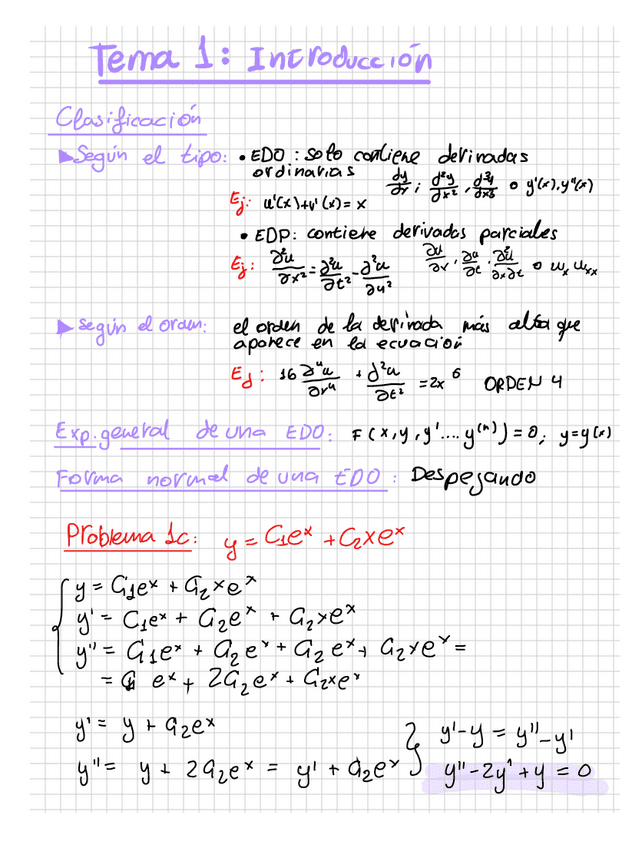 Tema 1: Introducción
Clasificación
▶Según el tipo: • EDO: solo contiene derivadas
ordinarias dy/dx; d²y/dx², d³y/dx³ o y'(x), y''(x)
Ej: u'(x)+v'(x)=x
• EDP: contiene derivadas parciales
Ej: ∂²u/∂x² = ∂²u/∂t² - ∂²u/∂y² ∂u/∂x, ∂u/∂t, ∂²u/∂x∂t o ux uxx
▶ según el orden: el orden de la derivada más alta que
aparece en la ecuación
Ej: 16 ∂⁴u/∂r⁴ + ∂²u/∂t² = 2x⁶ ORDEN 4
Exp. general de una EDO: F(x,y,y'....y⁽ⁿ⁾)=0; y=y(x)
Forma normal de una EDO: Despejando
Problema 1c: y = C₁eˣ + C₂xeˣ
y = C₁eˣ + C₂xeˣ
y' = C₁eˣ + C₂eˣ + C₂xeˣ
y'' = C₁eˣ + C₂eˣ + C₂eˣ + C₂xeˣ =
= C₁ eˣ + 2C₂eˣ + C₂xeˣ
y' = y + C₂eˣ
y'' = y + 2C₂eˣ = y' + C₂eˣ
} y'-y = y''-y'
y''-2y'+y = 0